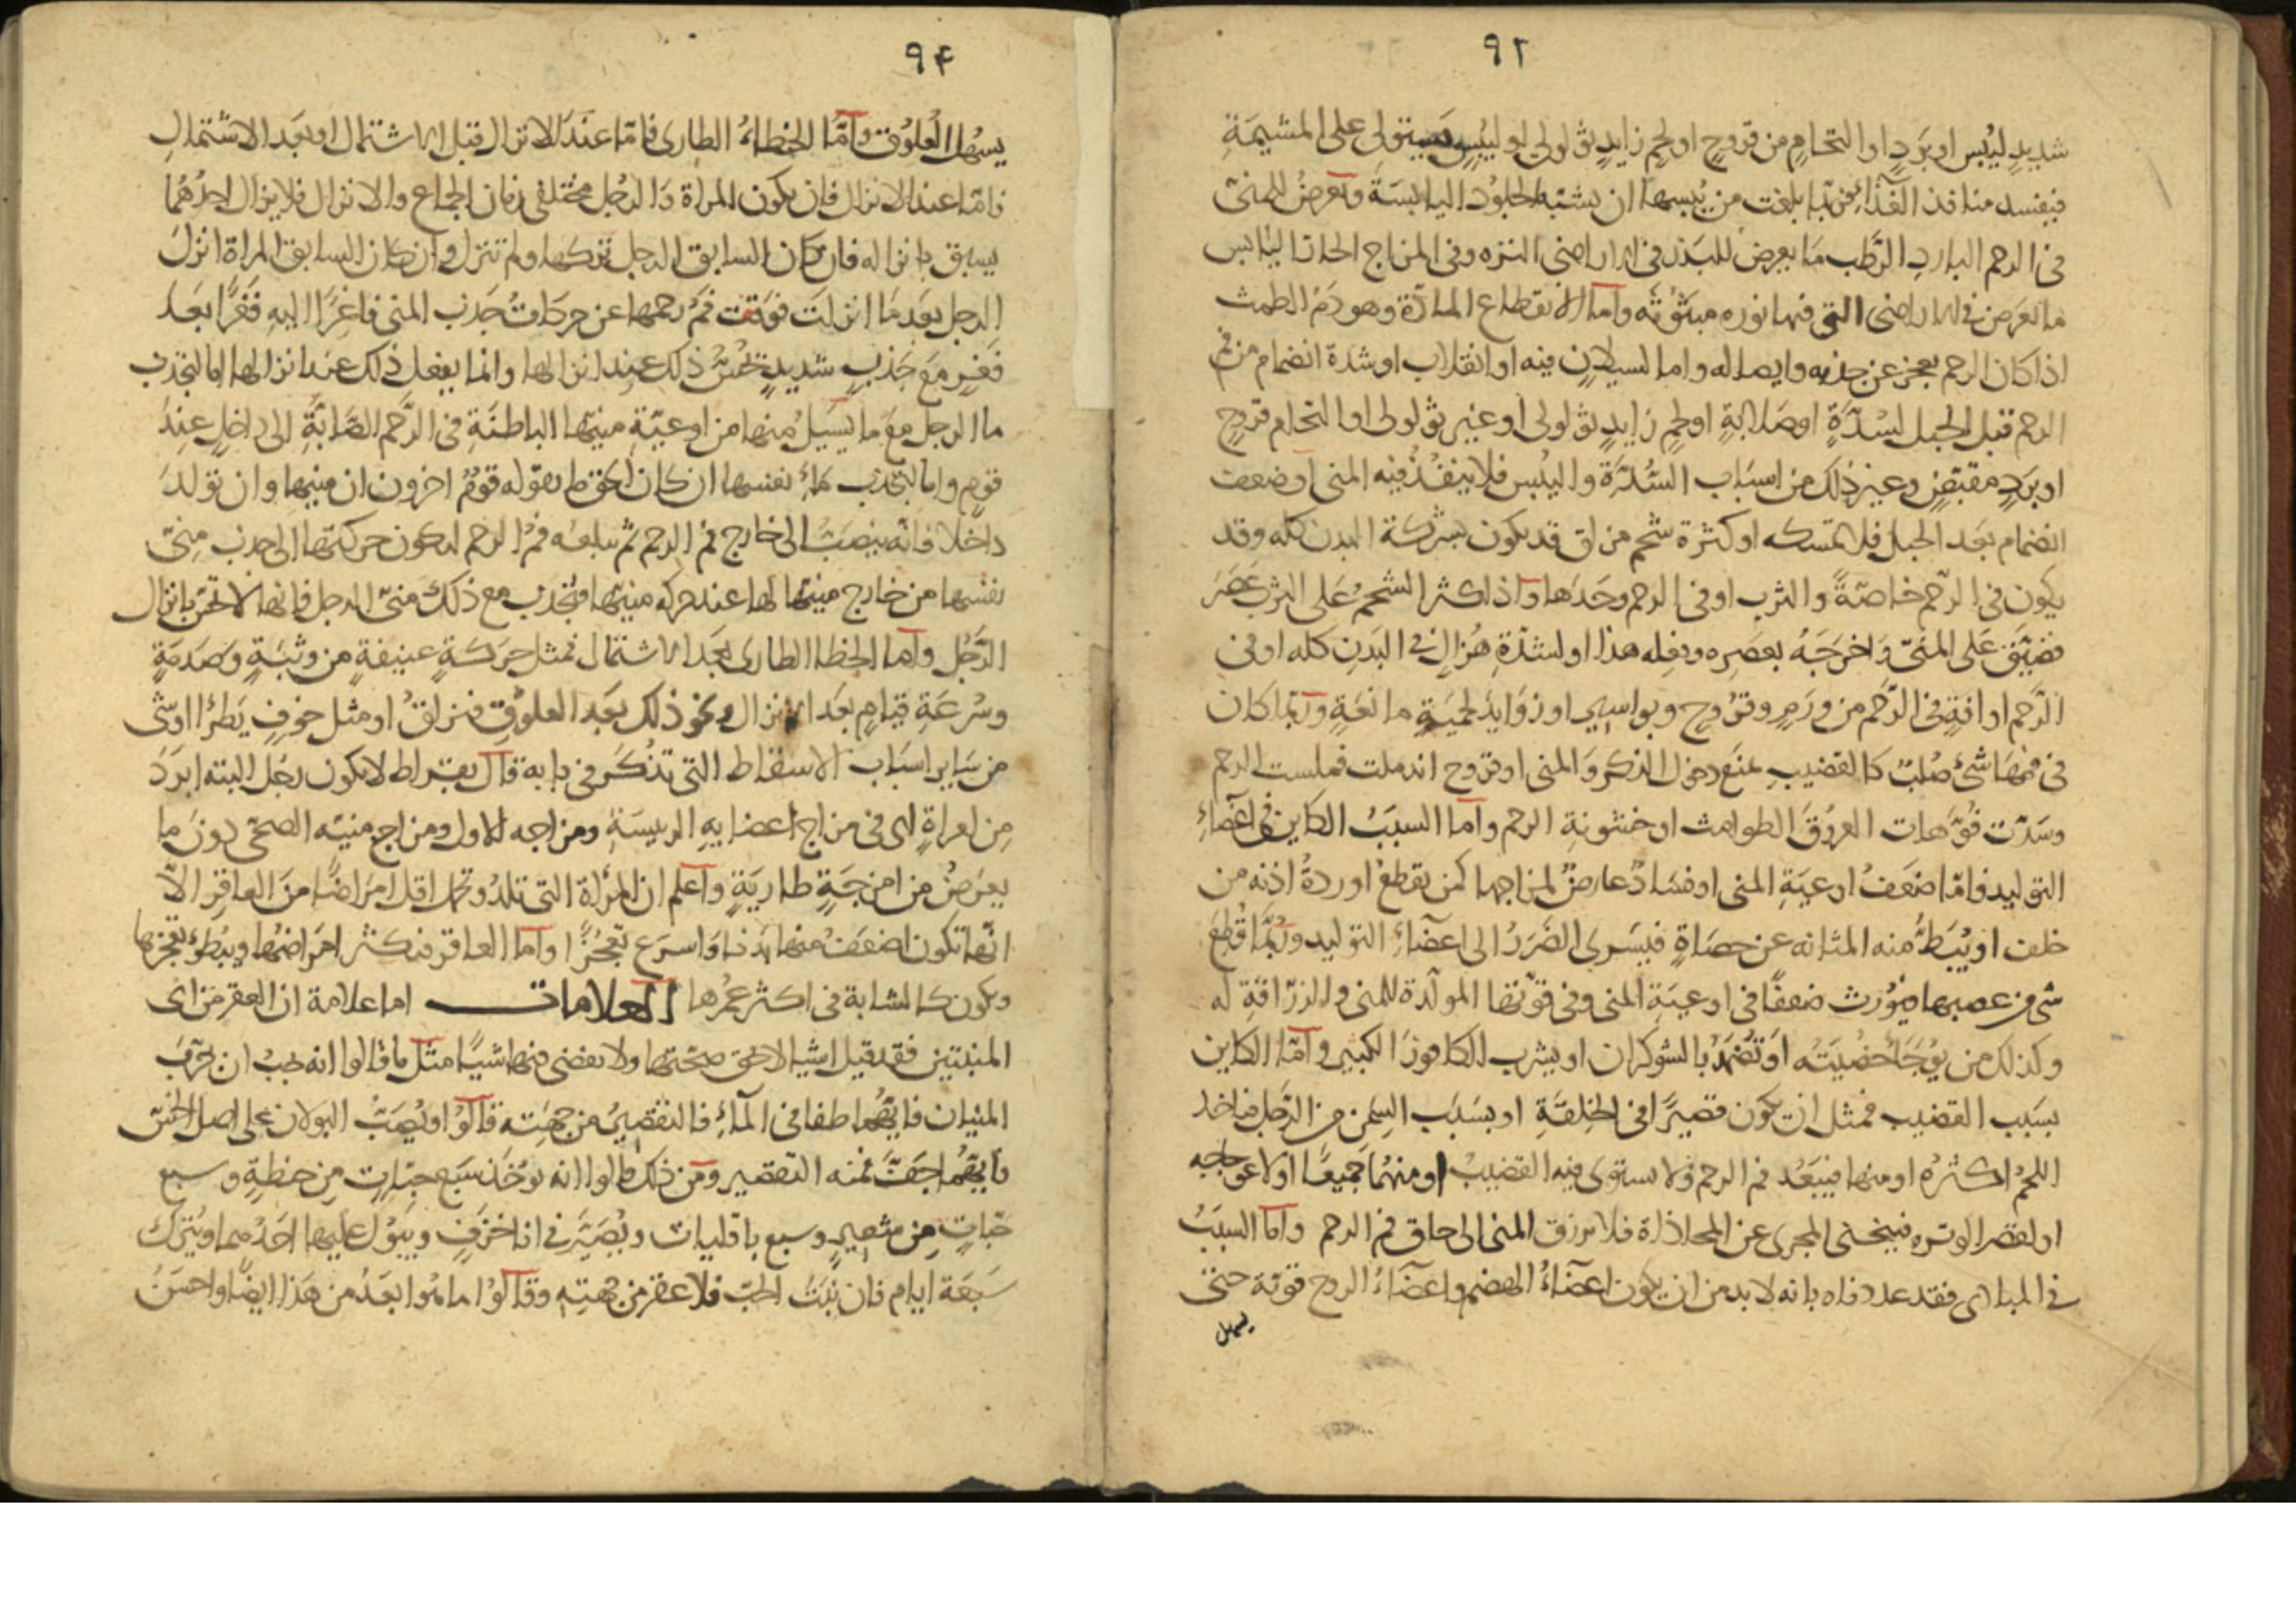 ٩٢
شديد ليبس او برد او التحام من قروح او لحم زايد ثؤلولى او ليبس يستولى على المشيمة
فيفسد منافذ الغذاء فربما بلغت من يبسها ان يشبه الجلود اليابسة ويعرض للمنى
فى الرحم البارد الرطب ما يعرض للبذر فى الاراضى النزه وفى المزاج الحار اليابس
ما يعرض فى الاراضى التى فيها نوره مبثوثه واما الانقطاع المادة وهو دم الطمث
اذا كان الرحم يعجز عن جذبه وايصاله واما لسيلان فيه او انقلاب او شدة انضمام من فم
الرحم قبل الحبل لسدة او صلابة او لحم زايد ثؤلولى او غير ثؤلولى او التحام قروح
او برد مقبض وغير ذلك من اسباب السدة واليبس فلا ينفذ فيه المنى او ضعف
انضمام بعد الحبل فلا تمسكه او كثرة شحم مزلق قد يكون بشركة البدن كله وقد
يكون فى الرحم خاصة والثرب او فى الرحم وحدها واذا كثر الشحم على الثرب عصر
فضيق على المنى واخرجه بعصره وفعله هذا او لشدة هزال فى البدن كله او فى
الرحم او افة فى الرحم من ورم وقروح وبواسير او زوايد لحمية مانعة وربما كان
فى فمها شئ صلب كالقضيب يمنع دخول الذكر والمنى او قروح اندملت فملست الرحم
وسدت فوهات العروق الطوامث او خشونة الرحم واما السبب الكاين فى اعضاء
التوليد فاما ضعف اوعية المنى او فساد عارض لمزاجها كمن يقطع اوردة اذنه من
خلف او يبط منه المثانه عن حصاة فيسرى الضرر الى اعضاء التوليد وربما قطع
شى من عصبها فيورث ضعفا فى اوعية المنى وفى قوتها المولدة للمنى والزراقة له
وكذلك من يوجا خصيته او تضمد بالشوكران او يشرب الكافور الكثير واما الكاين
بسبب القضيب فمثل ان يكون قصيرا فى الخلقة او بسبب السمن من الرجل فياخذ
اللحم اكثره او منها فيبعد فم الرحم ولا يستوى فيه القضيب او منهما جميعا او لاعوجاجه
او لقصر الوتره فيتخلى المجرى عن المحاذاة فلا يزرق المنى الى حاق فم الرحم واما السبب
فى المبادى فقد عددناه بانه لا بد من ان يكون اعضاء الهضم واعضاء الروح قوية حتى
يسهل
٩٤
يسهل العلوق واما الخطاء الطارى فاما عند الانزال قبل الاشتمال او بعد الاشتمال
فاما عند الانزال فان يكون المراة والرجل مختلفى زمان الجماع والانزال فلا يزال احدهما
يسبق بانزاله فان كان السابق الرجل تركها ولم تنزل وان كان السابق المراة انزل
الرجل بعد ما انزلت فوقف فم رحمها عن حركات جذب المنى فاغرا اليه فغرا بعد
فغر مع جذب شديد يحس ذلك عند انزالها وانما يفعل ذلك عند انزالها اما لتجذب
ما الرجل مع ما يسيل منها من اوعية منيها الباطنة فى الرحم الصابة الى داخل عند
قوم واما لتجذب ماء نفسها ان كان الحق ما يقوله قوم اخرون ان منيها وان تولد
داخلا فانه ينصب الى خارج فم الرحم ثم يبلعه فم الرحم لتكون حركتها الى جذب منى
نفسها من خارج منبها لها عند حركة منيها فتجذب مع ذلك منى الرجل فانها لا تخص بانزال
الرجل واما الخطا الطارى بعد الاشتمال فمثل حركة عنيفة من وثبة وصدمة
وسرعة قيام بعد الانزال ونحو ذلك بعد العلوق فيزلق او مثل خوف يطرا او شى
من ساير اسباب الاسقاط التى تذكر فى بابه قال بقراط لا يكون رجل البته ابرد
من امراة اى فى مزاج اعضايه الرييسة ومزاجه الاول ومزاج منيه الصحى دون ما
يعرض من امزجة طارية واعلم ان المراة التى تلد وتحبل اقل امراضا من العاقر الا
انها تكون اضعف منها بدنا واسرع تعجزا واما العاقر فيكثر امراضها ويبطؤ تعجزها
وتكون كالشابة فى اكثر عمرها العلامات اما علامة ان العقر من اى
المنيين فقد قيل اشيا لا يحق صحتها ولا نقضى فيها شيا مثل ما قالوا انه يجب ان يجرب
المنيان فايهما طفا فى الماء فالتقصير من جهته قالوا ويصب البولان على اصل الخس
فايهما جفف فمنه التقصير ومن ذلك قالوا انه يوخذ سبع حبات من حنطة وسبع
حبات من شعير وسبع باقليات وتصير فى انا خزف ويبول عليها احدهما ويترك
سبعة ايام فان نبت الحب فلا عقر من جهته وقالوا ما هو ابعد من هذا ايضا واحسن